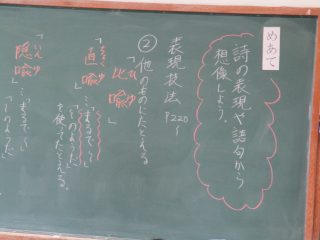 めあて
詩の表現や語句から
想像しよう。
表現技法 P220～
②他のものにたとえる
ひゆ
「比喩
ちょくゆ
「直喩」
…「まるで〜」
「〜のようだ」
を使ってたとえる。
いんゆ
「隠喩」
…「まるで〜」
「〜のようだ」